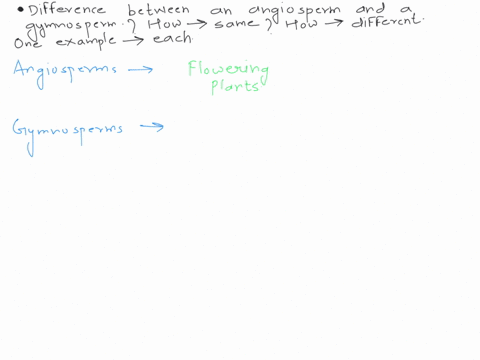 • Difference between an angiosperm and a
gymnosperm? How → same? How → different.
One example → each.
Angiosperms → Flowering
Plants
Gymnosperms →